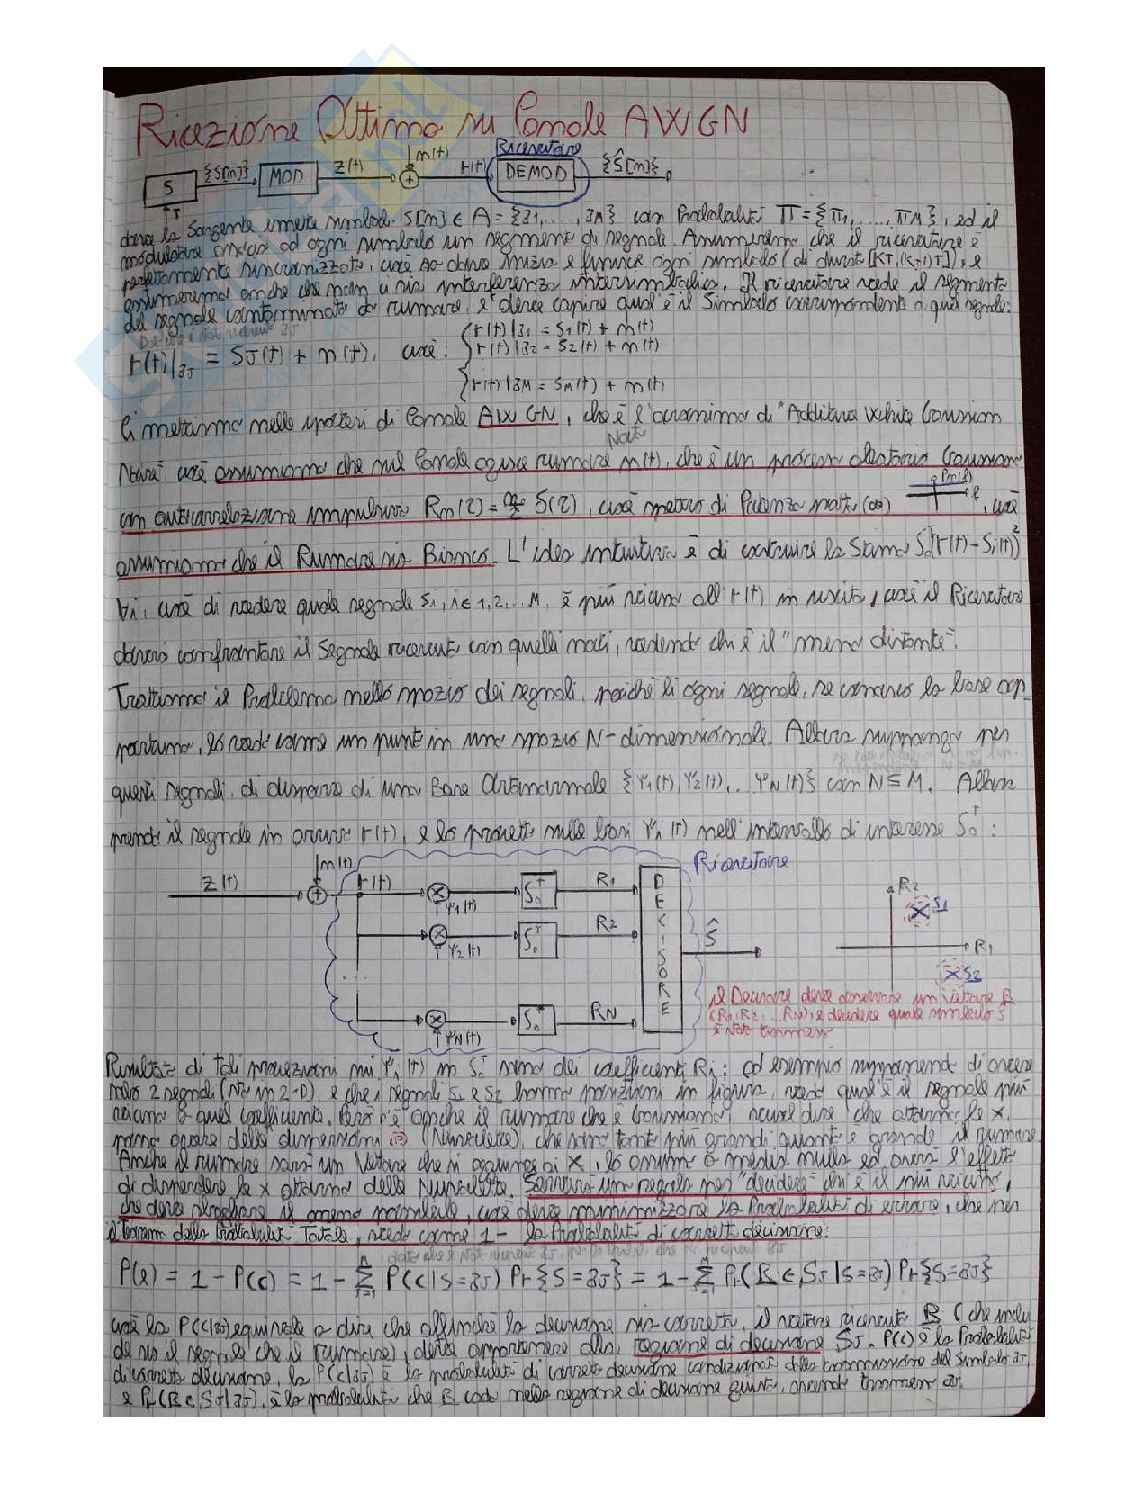 Ricezione Ottima su Canale AWGN
S {S[n]} MOD Z(t) n(t) r(t) Ricevitore DEMOD {Ŝ[n]}
T
dove la Sorgente emette simboli S[n] ∈ A = {z1, ..., zM} con Probabilità Π = {π1, ..., πM}, ed il
modulatore associa ad ogni simbolo un segmento di segnale. Assumeremo che il ricevitore è
perfettamente sincronizzato, cioè sa dove inizia e finisce ogni simbolo (di durata [KT,(k+1)T]), e
assumeremo anche che non vi sia interferenza intersimbolica. Il ricevitore vede il segmento
del segnale contaminato da rumore, e deve capire qual è il Simbolo corrispondente a quel segnale:
r(t)|zJ = SJ(t) + n(t), cioè: { r(t)|z1 = S1(t) + n(t)
r(t)|z2 = S2(t) + n(t)
r(t)|zM = SM(t) + n(t)
Ci mettiamo nelle ipotesi di Canale AWGN, che è l'acronimo di "Additive White Gaussian
Noise" cioè assumiamo che sul Canale agisca rumore n(t), che è un processo aleatorio Gaussiano
con autocorrelazione impulsiva Rn(τ) = δ(τ), cioè mezzo di Potenza (∞), cioè
assumiamo che il Rumore sia Bianco. L'idea intuitiva è di costruire la Stima ∫(r(t)-Si(t))²
∀i, cioè di vedere quale segnale Si, i∈1,2...M, è più vicino all'r(t) in uscita, cioè il Ricevitore
dovrà confrontare il Segnale ricevuto con quelli noti, vedendo chi è il "meno distante".
Trattiamo il Problema nello spazio dei segnali, poiché lì ogni segnale, se conosco la base opportuna
portuna, lo vedo come un punto in uno spazio N-dimensionale. Allora suppongo per
questi segnali, di disporre di una Base Ortonormale {ψ1(t), ψ2(t), ... ψN(t)} con N≤M. Allora
prendo il segnale in arrivo r(t), e lo proietto sulle basi ψn(t) nell'intervallo di interesse ∫0T:
Z(t) n(t) r(t) Ricevitore
ψ1(t) ∫0T R1
ψ2(t) ∫0T R2
ψN(t) ∫0T RN
DECISORE Ŝ
R2 S1 R1 S2
il Decisore deve osservare un Vettore R
(R1, R2, ... RN), e decidere quale simbolo S
è stato trasmesso
Risultato di tali proiezioni sui ψn(t) in ∫0T sono dei coefficienti Ri: ad esempio supponendo di avere
solo 2 segnali (N=2 in 2-D) e che i segnali S1 e S2 hanno posizioni in figura, vedo qual è il segnale più
vicino a quel coefficiente. Però c'è anche il rumore che è trasmesso,
Anche il rumore sarà un Vettore che si aggiunge ai X, lo assumo a media nulla ed avrà l'effetto
di disperdere le x attorno delle Nuvolette. Serve una regola per "decidere" chi è il più vicino,
che deve sbagliare il meno possibile, cioè deve minimizzare la Probabilità di errore, che per
il teorema delle Probabilità Totale, vede come 1 - la Probabilità di corretta decisione:
P(e) = 1 - P(c) = 1 - Σ P(c|S=zJ) Pr{S=zJ} = 1 - Σ Pr(R ∈ SJ|S=zJ) Pr{S=zJ}
cioè la P(c|zJ) equivale a dire che affinché la decisione sia corretta, il vettore ricevuto R (che include
de sia il segnale che il rumore) deve appartenere alla regione di decisione SJ. P(c) è la Probabilità
di corretta decisione, la P(c|zJ) è la probabilità di corretta decisione condizionata alla trasmissione del simbolo zJ,
e Pr(R∈SJ|zJ), è la probabilità che R cada nella regione di decisione giusta, avendo trasmesso zJ.